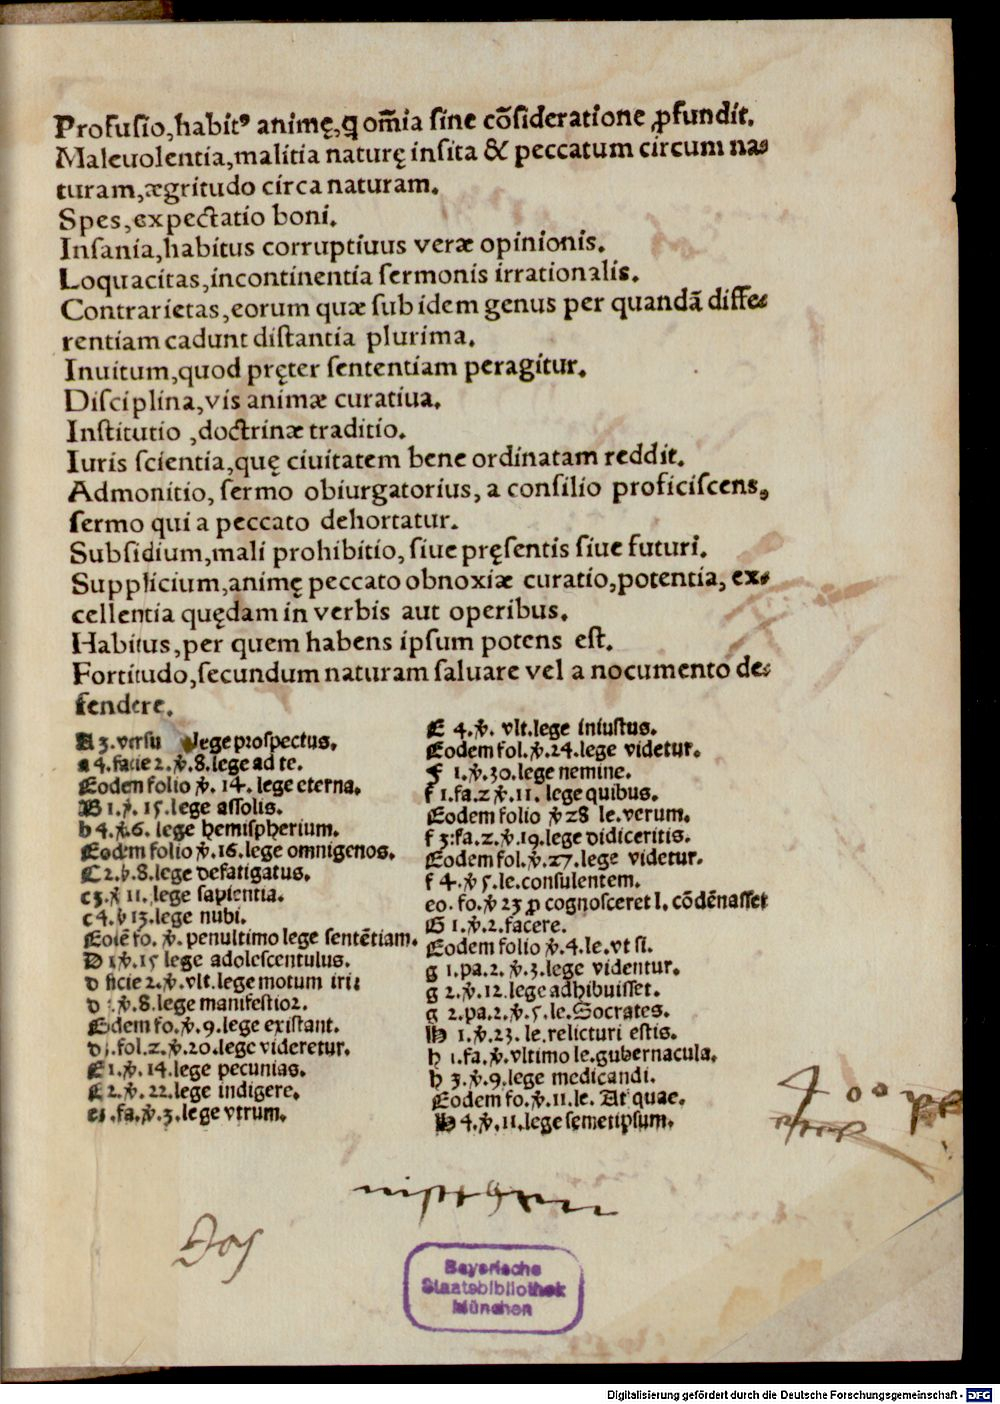 Profusio,habitꝰ animę,q om̃ia sine cõsideratione ꝓfundit.
Maleuolentia,malitia naturę insita & peccatum circum na⸗
turam,ægritudo circa naturam.
Spes,expectatio boni.
Insania,habitus corruptiuus veræ opinionis.
Loquacitas,incontinentia sermonis irrationalis.
Contrarietas,eorum quæ sub idem genus per quandã diffe⸗
rentiam cadunt distantia plurima.
Inuitum,quod pręter sententiam peragitur.
Disciplina,vis animæ curatiua.
Institutio ,doctrinæ traditio.
Iuris scientia,quę ciuitatem bene ordinatam reddit.
Admonitio, sermo obiurgatorius, a consilio proficiscens,
sermo qui a peccato dehortatur.
Subsidium,mali prohibitio, siue pręsentis siue futuri.
Supplicium,animę peccato obnoxiæ curatio,potentia, ex⸗
cellentia quędam in verbis aut operibus.
Habitus,per quem habens ipsum potens est.
Fortitudo,secundum naturam saluare vel a nocumento de⸗
fendere.
A 3.versu lege prospectus.
a 4.facie 2.ṽ.8.lege ad te.
Eodem folio ṽ. 14. lege eterna.
B 1.ṽ. 15.lege assolis.
b 4.ṽ.6. lege hemispherium.
Eodem folio ṽ.16.lege omnigenos.
C 2.ṽ.8.lege defatigatus.
c3.ṽ 11. lege sapientia.
c 4.ṽ 13.lege nubi.
fo. ṽ. penultimo lege sentẽtiam.
D 1ṽ.15 lege adolescentulus.
d 2.ṽ.vlt.lege motum iri:
d ṽ.8.lege manifestior.
Eodem fo.ṽ.9.lege existant.
d .fol.2.ṽ.20.lege videretur.
E 1.ṽ. 14.lege pecunias.
E 2.ṽ. 22.lege indigere.
.fa.ṽ.3.lege vtrum.
E 4.ṽ. vlt.lege iniustus.
Eodem fol.ṽ.24.lege videtur.
F 1.ṽ.30.lege nemine.
f 1.fa.2 ṽ.11. lege quibus.
Eodem folio ṽ 28 le.verum.
f 3.fa.2.ṽ.19.lege didiceritis.
Eodem fol.ṽ.27.lege videtur.
f 4.ṽ 5.le.consulentem.
eo. fo.ṽ 23 ꝓ cognosceret l. cõdẽnasset
G 1.ṽ.2.facere.
Eodem folio ṽ.4.le.vt si.
g 1.pa.2. ṽ.3.lege videntur.
g 2.ṽ.12.lege adhibuisset.
g 2.pa.2.ṽ.5.le.Socrates.
H 1.ṽ.23. le.relicturi estis.
h 1.fa.ṽ.vltimo le.gubernacula.
h 3.ṽ.9.lege medicandi.
Eodem fo.ṽ.11.le. At quae.
H 4.ṽ.11.lege semetipsum.
Bayerische
Staatsbibliothek
München
Digitalisierung gefördert durch die Deutsche Forschungsgemeinschaft - DFG